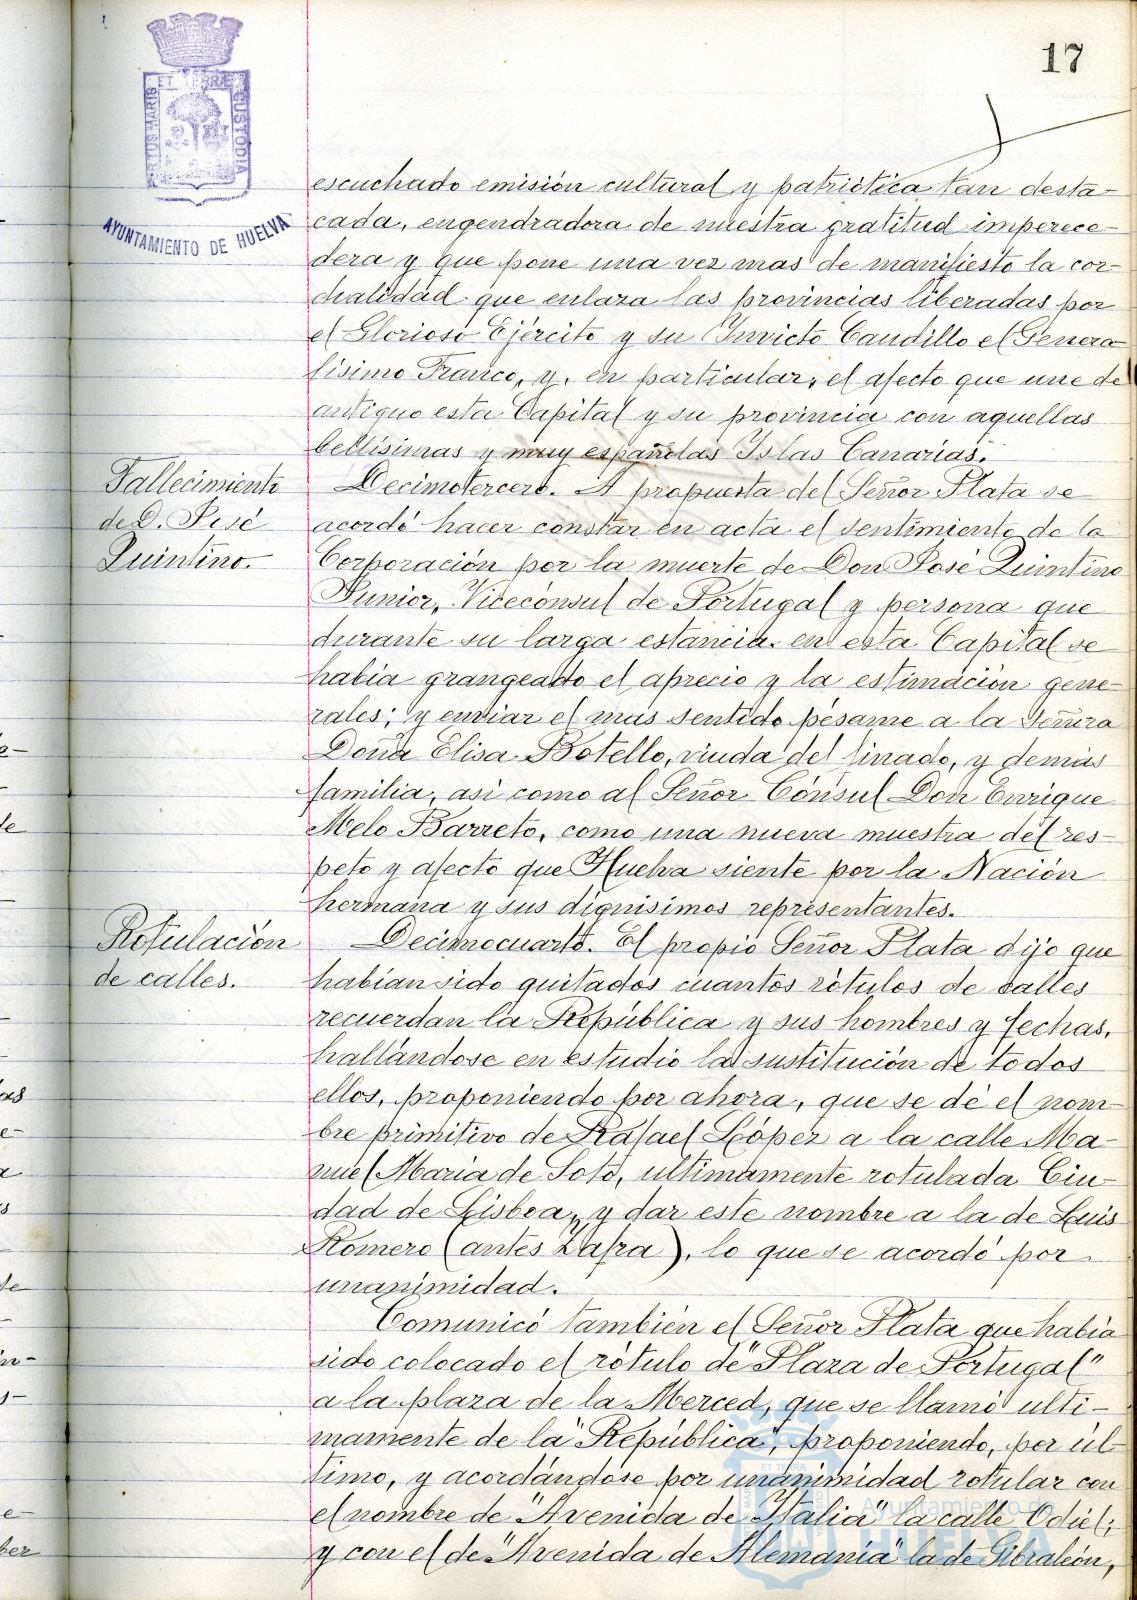 17
PORTUS MARIS ET TERRÆ CUSTODIA
AYUNTAMIENTO DE HUELVA
escuchado emisión cultural y patriótica tan desta-
cada, engendradora de nuestra gratitud imperece-
dera y que pone una vez mas de manifiesto la cor-
dialidad que enlaza las provincias liberadas por
el Glorioso Ejército y su Invicto Caudillo el Genera-
lísimo Franco, y, en particular, el afecto que une de
antiguo esta Capital y su provincia con aquellas
bellísimas y muy españolas Yslas Canarias.
Fallecimiento
de D. José
Quintino.
Decimotercero. A propuesta del Señor Plata se
acordó hacer constar en acta el sentimiento de la
Corporación por la muerte de Don José Quintino
Junior, Vicecónsul de Portugal y persona que
durante su larga estancia en esta Capital se
había grangeado el aprecio y la estimación gene-
rales; y enviar el mas sentido pésame a la Señora
Doña Elisa Botello, viuda del finado, y demás
familia, asi como al Señor Cónsul Don Enrique
Melo Barreto, como una nueva muestra del res-
peto y afecto que Huelva siente por la Nación
hermana y sus dignisimos representantes.
Rotulación
de calles.
Decimocuarto. El propio Señor Plata dijo que
habían sido quitados cuantos rótulos de calles
recuerdan la República y sus hombres y fechas,
hallándose en estudio la sustitución de todos
ellos, proponiendo por ahora, que se dé el nom-
bre primitivo de Rafael López a la calle Ma-
nuel María de Soto, ultimamente rotulada Ciu-
dad de Lisboa, y dar este nombre a la de Luis
Romero (antes Zafra), lo que se acordó por
unanimidad.
Comunicó también el Señor Plata que había
sido colocado el rótulo de "Plaza de Portugal"
a la plaza de la Merced, que se llamó ulti-
mamente de la "República", proponiendo, por úl-
timo, y acordándose por unanimidad rotular con
el nombre de "Avenida de Italia" la calle Odiel;
y con el de "Avenida de Alemania" la de Gibraleón,
Ayuntamiento de
HUELVA